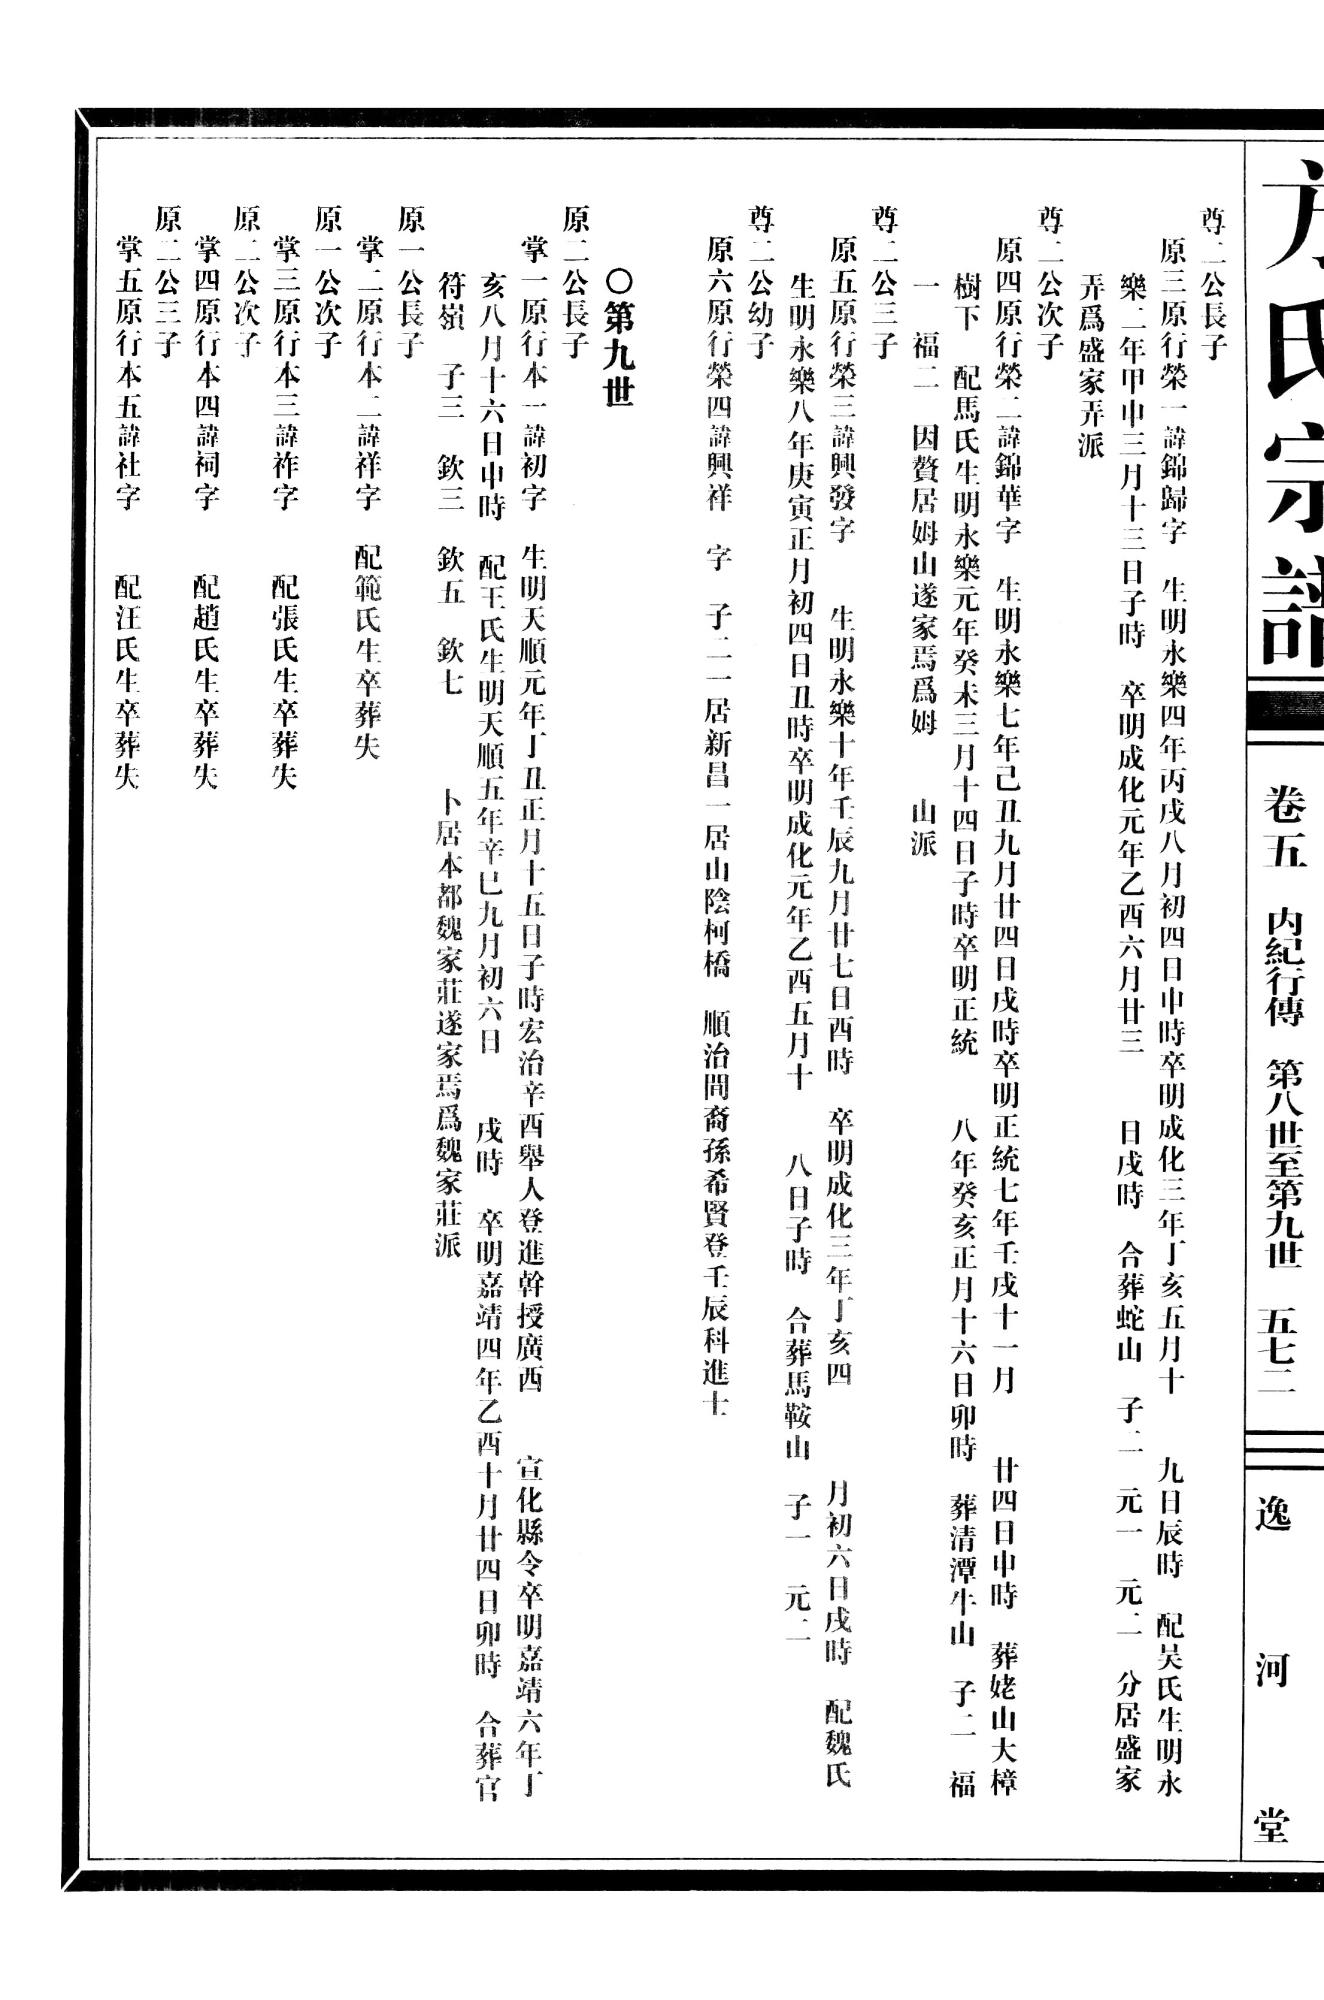 方氏宗譜
卷五　內紀行傳　第八世至第九世　五七二
逸河堂
尊二公長子
原三原行榮一諱錦歸字　生明永樂四年丙戌八月初四日申時卒明成化三年丁亥五月十　九日辰時　配吴氏生明永
樂二年甲申三月十三日子時　卒明成化元年乙酉六月廿三　日戌時　合葬蛇山　子二　元一　元二　分居盛家
弄爲盛家弄派
尊二公次子
原四原行榮二諱錦華字　生明永樂七年己丑九月廿四日戌時卒明正統七年壬戌十一月　廿四日申時　葬姥山大樟
樹下　配馬氏生明永樂元年癸未三月十四日子時卒明正統　八年癸亥正月十六日卯時　葬清潭牛山　子二　福
一　福二　因贅居姆山遂家焉爲姆　山派
尊二公三子
原五原行榮三諱興發字　生明永樂十年壬辰九月廿七日酉時　卒明成化三年丁亥四　月初六日戌時　配魏氏
生明永樂八年庚寅正月初四日丑時卒明成化元年乙酉五月十　八日子時　合葬馬鞍山　子一　元二
尊二公幼子
原六原行榮四諱興祥　字　子二一居新昌一居山陰柯橋　順治間裔孫希賢登壬辰科進士
○第九世
原二公長子
掌一原行本一諱初字　生明天順元年丁丑正月十五日子時宏治辛酉舉人登進幹授廣西　宣化縣令卒明嘉靖六年丁
亥八月十六日申時　配王氏生明天順五年辛巳九月初六日　戌時　卒明嘉靖四年乙酉十月廿四日卯時　合葬官
符嶺　子三　欽三　欽五　欽七　卜居本都魏家莊遂家焉爲魏家莊派
原一公長子
掌二原行本二諱祥字　配範氏生卒葬失
原一公次子
掌三原行本三諱祚字　配張氏生卒葬失
原二公次子
掌四原行本四諱祠字　配趙氏生卒葬失
原二公三子
掌五原行本五諱社字　配汪氏生卒葬失